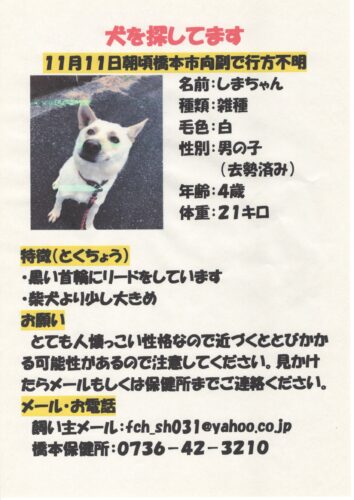 犬を探してます
11月11日朝頃橋本市向副で行方不明
名前:しまちゃん
種類:雑種
毛色:白
性別:男の子
(去勢済み)
年齢:4歳
体重:21キロ
特徴(とくちょう)
・黒い首輪にリードをしています
・柴犬より少し大きめ
お願い
とても人懐っこい性格なので近づくととびかか
る可能性があるので注意してください。見かけ
たらメールもしくは保健所までご連絡ください。
メール・お電話
飼い主メール:fch_sh031@yahoo.co.jp
橋本保健所:0736-42-3210